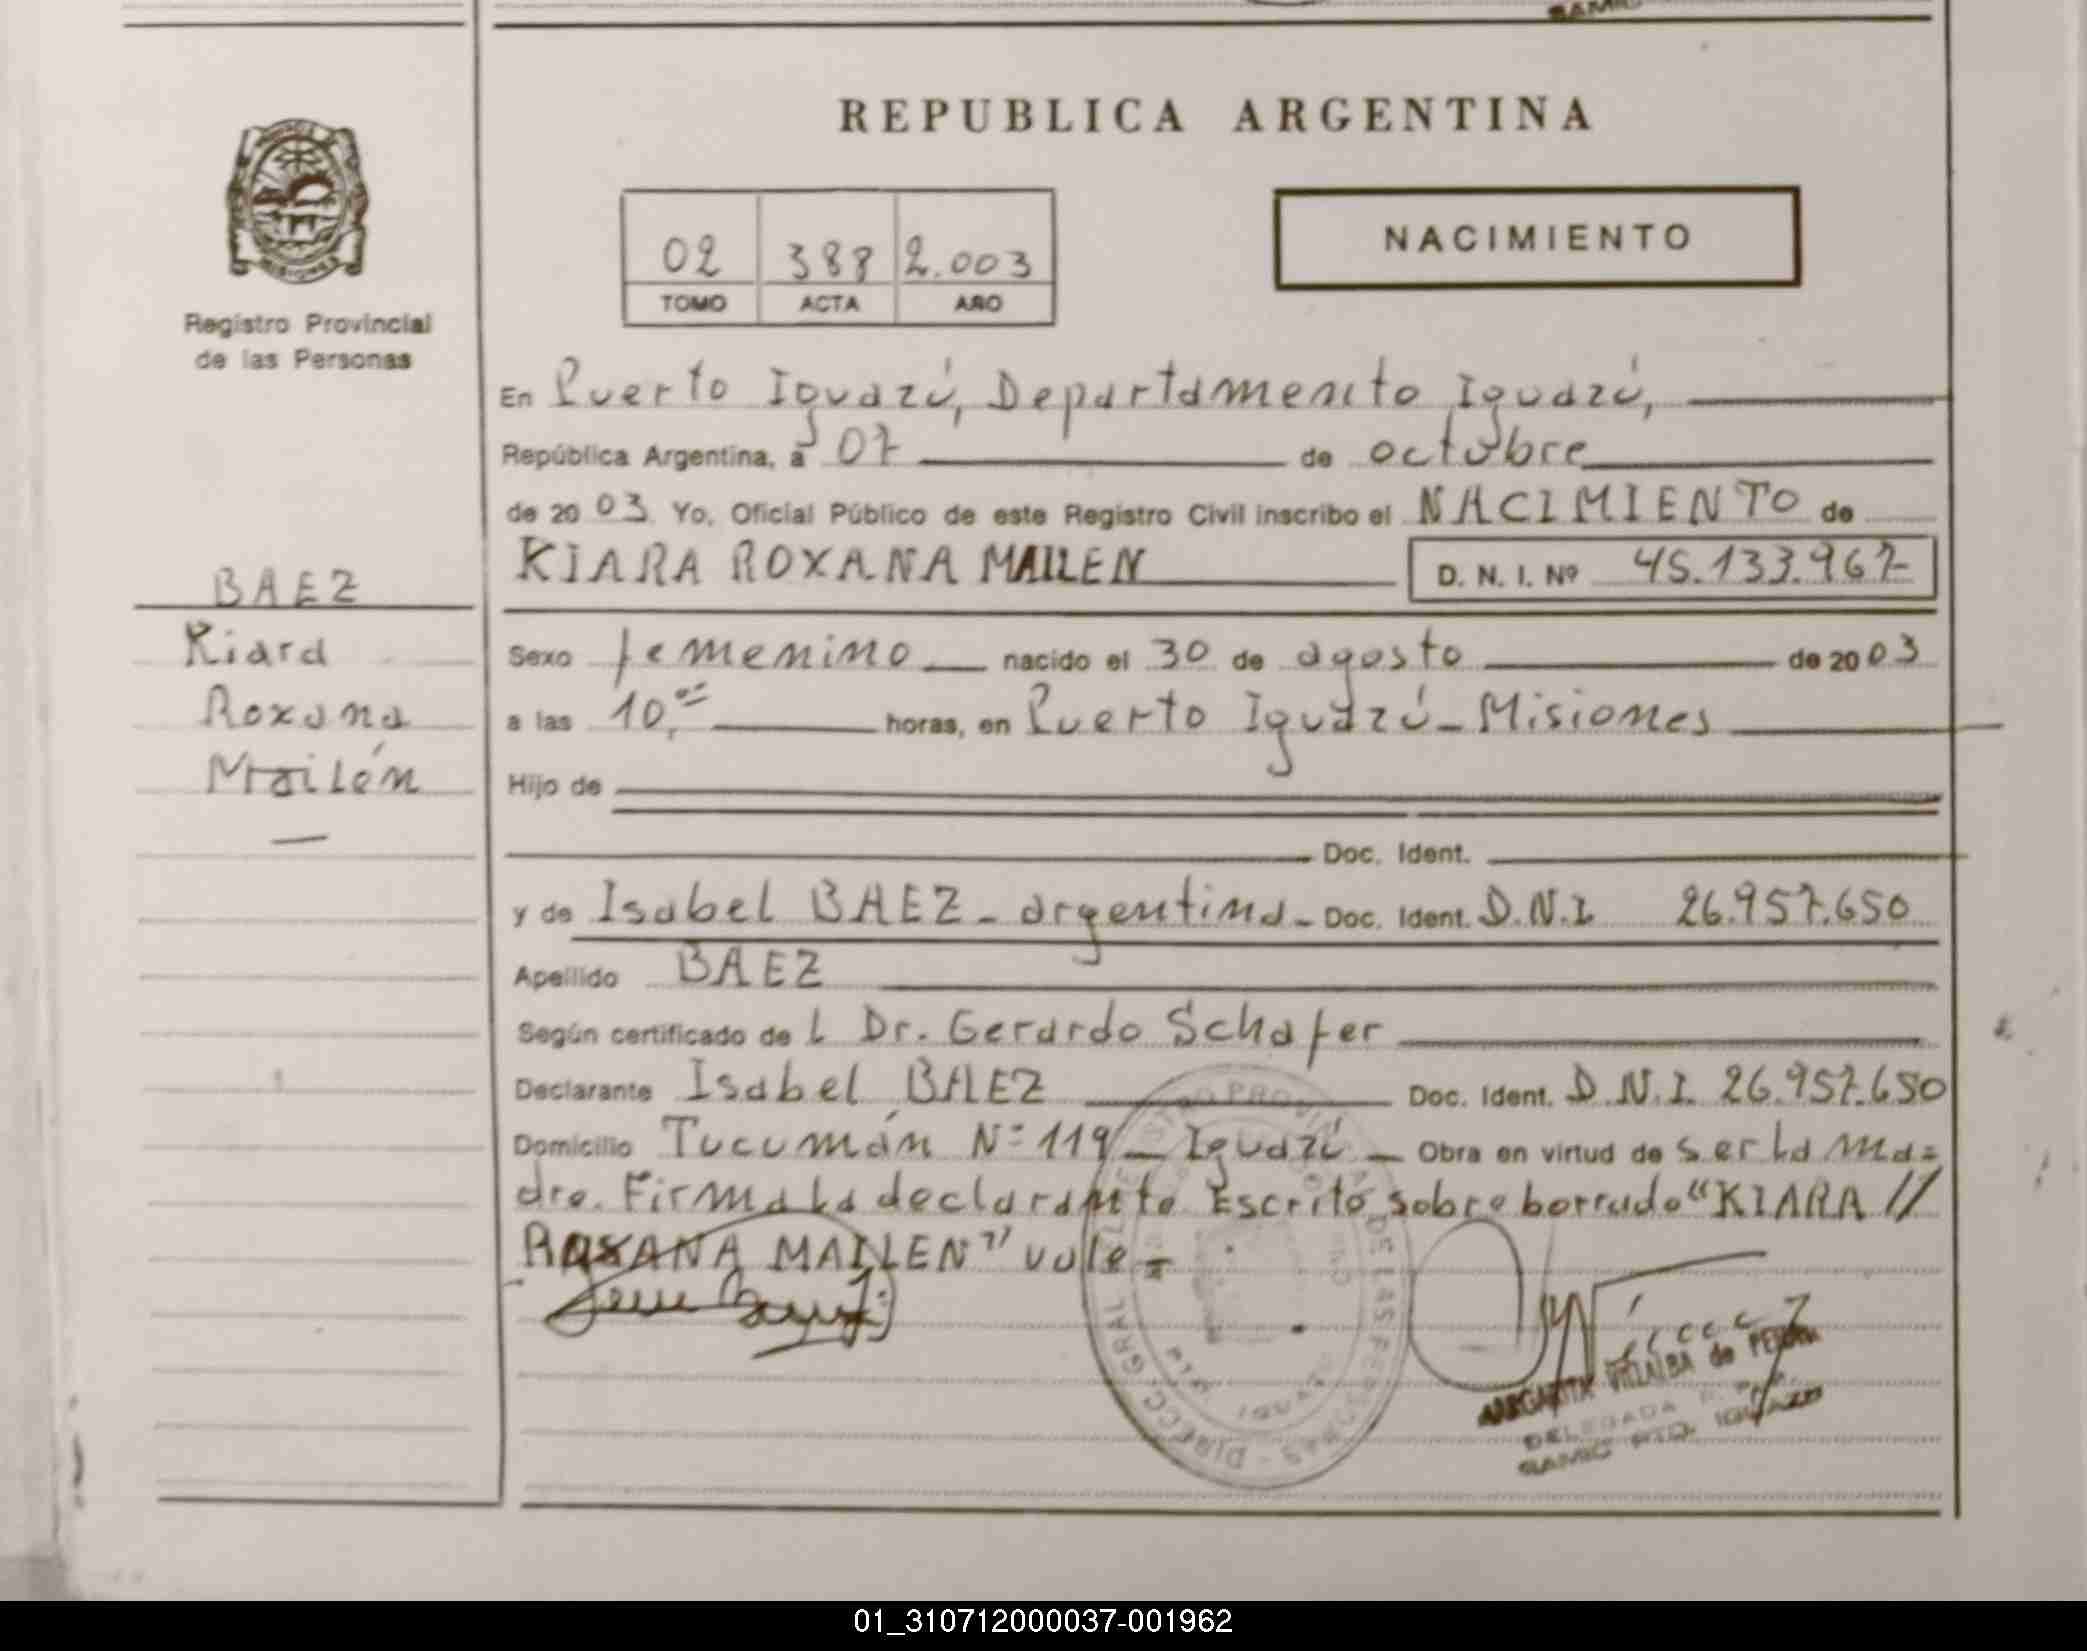 REPUBLICA ARGENTINA
02 388 2.003
TOMO ACTA AÑO
NACIMIENTO
Registro Provincial
de las Personas
BAEZ
Kiara
Roxana
Mailén
En Puerto Iguazú, Departamento Iguazú,
República Argentina, a 07 de octubre
de 2003 Yo, Oficial Público de este Registro Civil inscribo el NACIMIENTO de
KIARA ROXANA MAILEN D. N. I. Nº 45.133.967
Sexo femenino nacido el 30 de agosto de 2003
a las 10,00 horas, en Puerto Iguazú - Misiones
Hijo de
Doc. Ident.
y de Isabel BAEZ - argentina - Doc. Ident. D.N.I. 26.957.650
Apellido BAEZ
Según certificado del Dr. Gerardo Schafer
Declarante Isabel BAEZ Doc. Ident. D.N.I. 26.957.650
Domicilio Tucumán Nº 119 - Iguazú - Obra en virtud de ser la ma=
dre. Firma la declarante Escrito sobre borrado "KIARA //
ROXANA MAILEN" vale =
MARGARITA VILLALBA de
DELEGADA
SAMIC PTO. IGUAZU
01_310712000037-001962